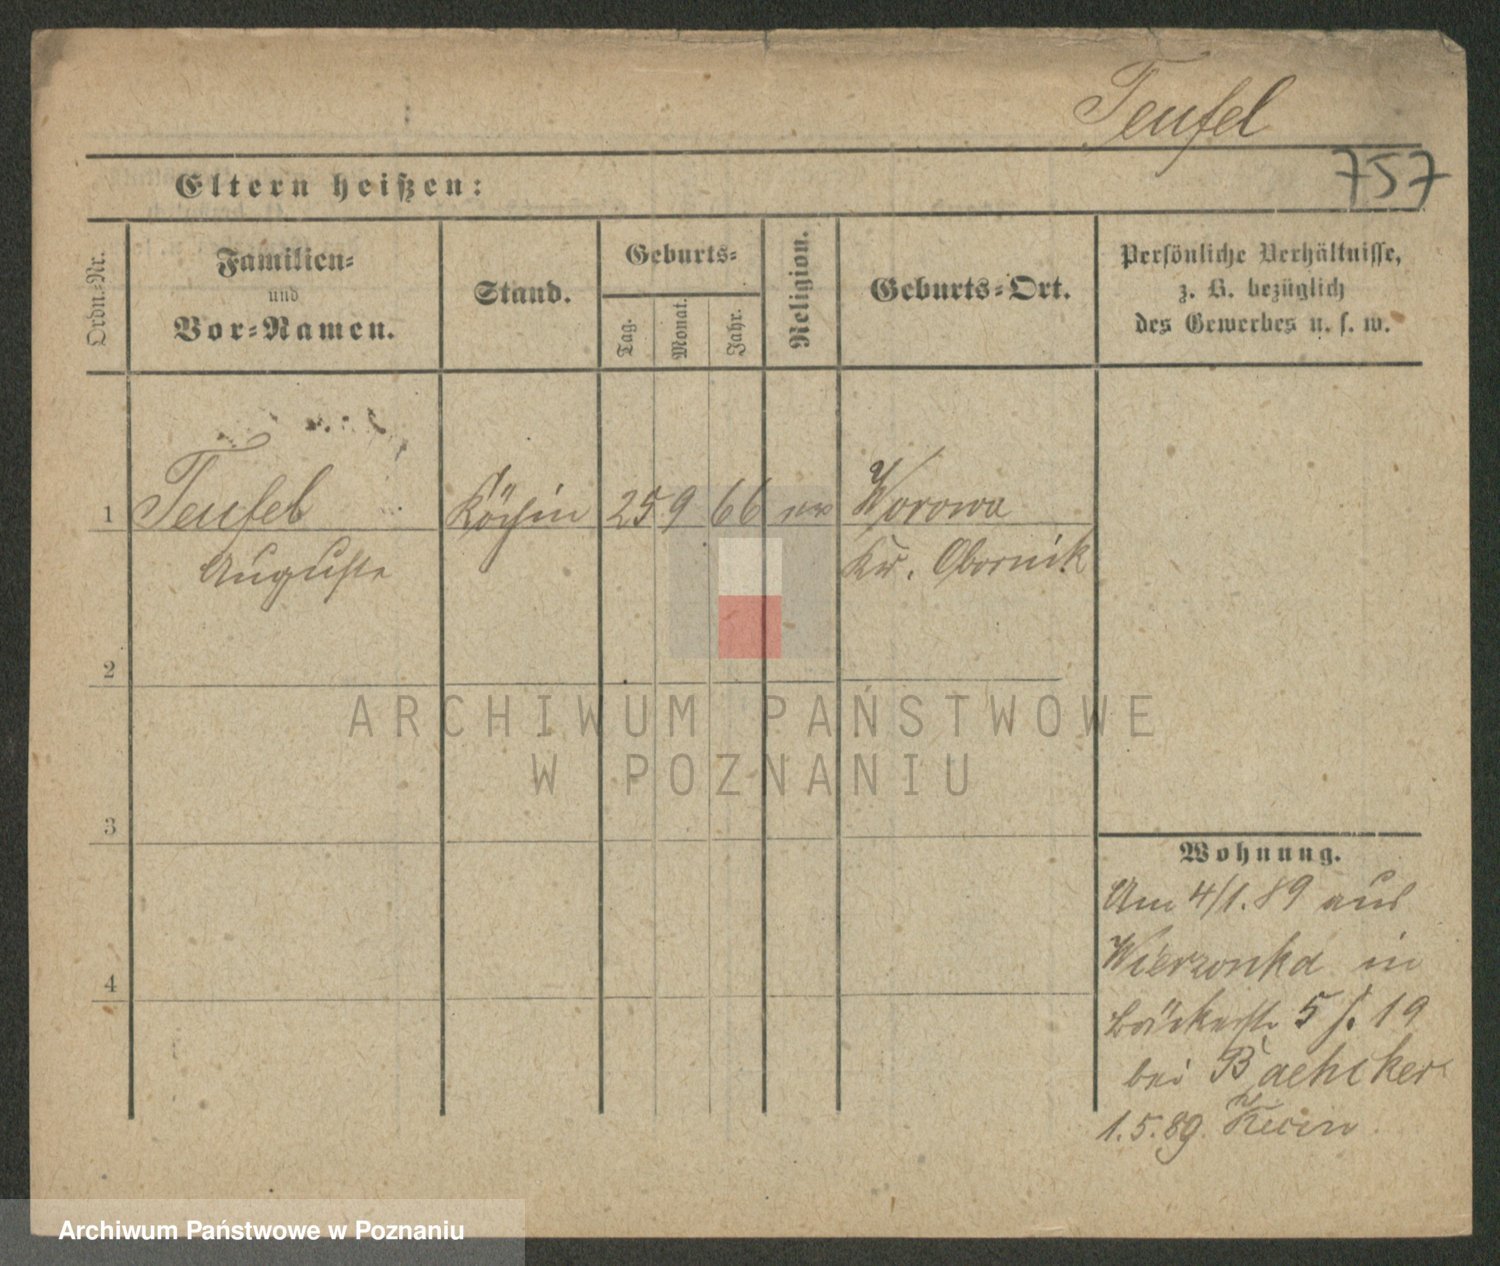 Teufel
757
Eltern heißen:
Ordn.-Nr.
Familien-
und
Vor-Namen.
Stand.
Geburts-
Tag.
Monat.
Jahr.
Religion.
Geburts-Ort.
Persönliche Verhältnisse,
z. B. bezüglich
des Gewerbes u. s. w.
1 Teufel Köchin 25 9 66 ev Worowa
Auguste Kr. Obornik
2
3
4
Wohnung.
Am 4/1.89 aus
Wierzonka in
Bäckerstr 5 19
bei Baehcker
1.5.89 Kicin
ARCHIWUM PAŃSTWOWE
W POZNANIU
Archiwum Państwowe w Poznaniu